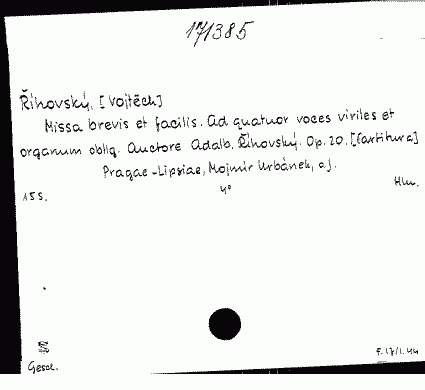 171385
Říhovský, [Vojtěch]
Missa brevis et facilis. Ad quatuor voces viriles et
organum oblig. Auctore Adalb. Říhovský. Op. 20. [Partitura]
Pragae-Lipsiae, Mojmír Urbánek, o.j.
15 S. 4° Hlw.
Gesch. F.17/1.44